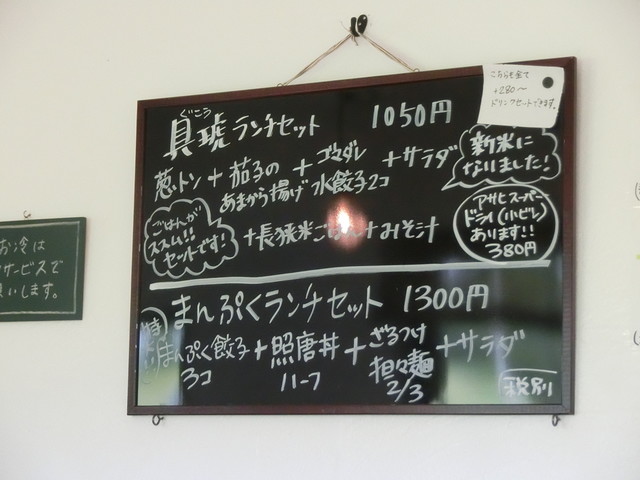 こちらも全て
+280〜
ドリンクセットできます。
ぐこう
具琥ランチセット 1050円
葱トン + 茄子の あまから揚げ + ゴマダレ 水餃子2コ + サラダ
新米に
なりました!
ごはんが
ススム!!
セットです!
+長狭米ごはん+みそ汁
アサヒスーパー
ドライ(小ビン)
あります!!
380円
まんぷくランチセット 1300円
まんぷく餃子 3コ + 照唐丼 ハーフ + ざるつけ 担々麺 2/3 + サラダ
税別
お冷は
サービスで
します。